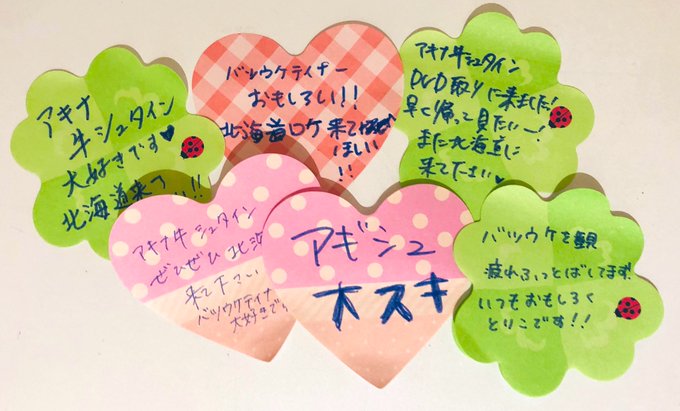 アキナ
牛シュタイン
大好きです♥
北海道来て
!!
バツウケテイナー
おもしろい!!
北海道ロケ来て
ほしい
!!
アキナ牛シュタイン
DVD取りに来ました!
早く帰って見たいー!
また北海道に
来て下さい♥
アキナ牛シュタイン
ぜひぜひ北海
来て下さい
バツウケテイナ
大好きです
アギシュ
大スキ
バツウケを観
疲れふっとばしてます
いつもおもしろく
とりこです!!